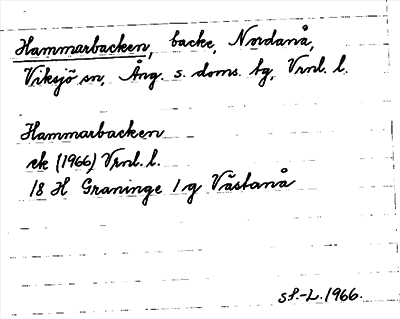 Hammarbacken, backe, Nordanå,
Viksjö sn, Ång. s. doms. tg, Vrnl. l.
Hammarbacken
ek (1966) Vrnl. l.
18 H Graninge 1 g Västanå
sf.-L. 1966.